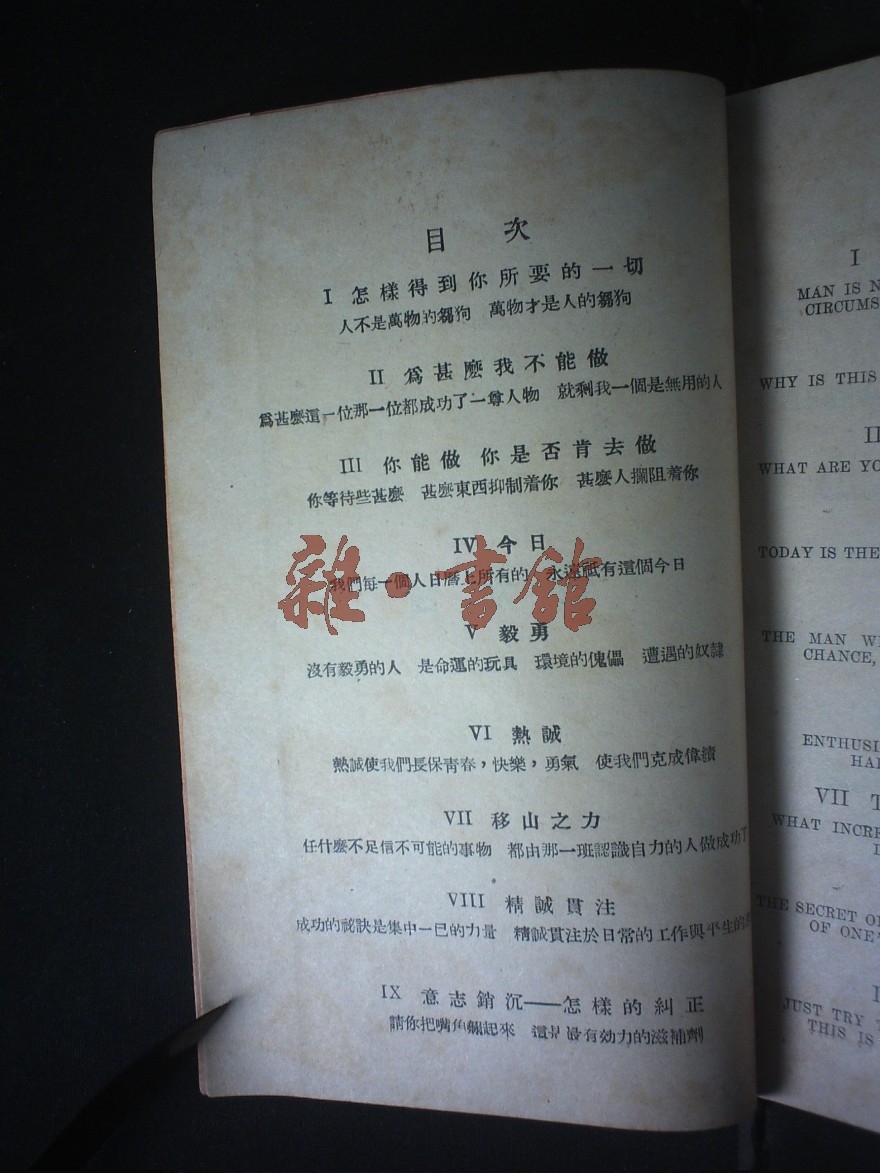 目次
I 怎樣得到你所要的一切
人不是萬物的芻狗 萬物才是人的芻狗
II 爲甚麽我不能做
爲甚麽這一位那一位都成功了一尊人物 就剩我一個是無用的人
III 你能做 你是否肯去做
你等待些甚麽 甚麽東西抑制着你 甚麽人攔阻着你
IV 今日
我們每一個人日曆上所有的 永遠祗有這個今日
V 毅勇
沒有毅勇的人 是命運的玩具 環境的傀儡 遭遇的奴隸
VI 熱誠
熱誠使我們長保青春，快樂，勇氣 使我們克成偉績
VII 移山之力
任什麽不足信不可能的事物 都由那一班認識自力的人做成功了
VIII 精誠貫注
成功的祕訣是集中一己的力量 精誠貫注於日常的工作與平生的
IX 意志銷沉——怎樣的糾正
請你把嘴角翹起來 這是最有効力的滋補劑
雜·書館
I
MAN IS
CIRCUMS
WHY IS THIS
II
WHAT ARE
TODAY IS THE
THE MAN
CHANCE,
ENTHUSI
VII
WHAT INCRE
THE SECRET
OF ONE'
JUST TRY
THIS IS